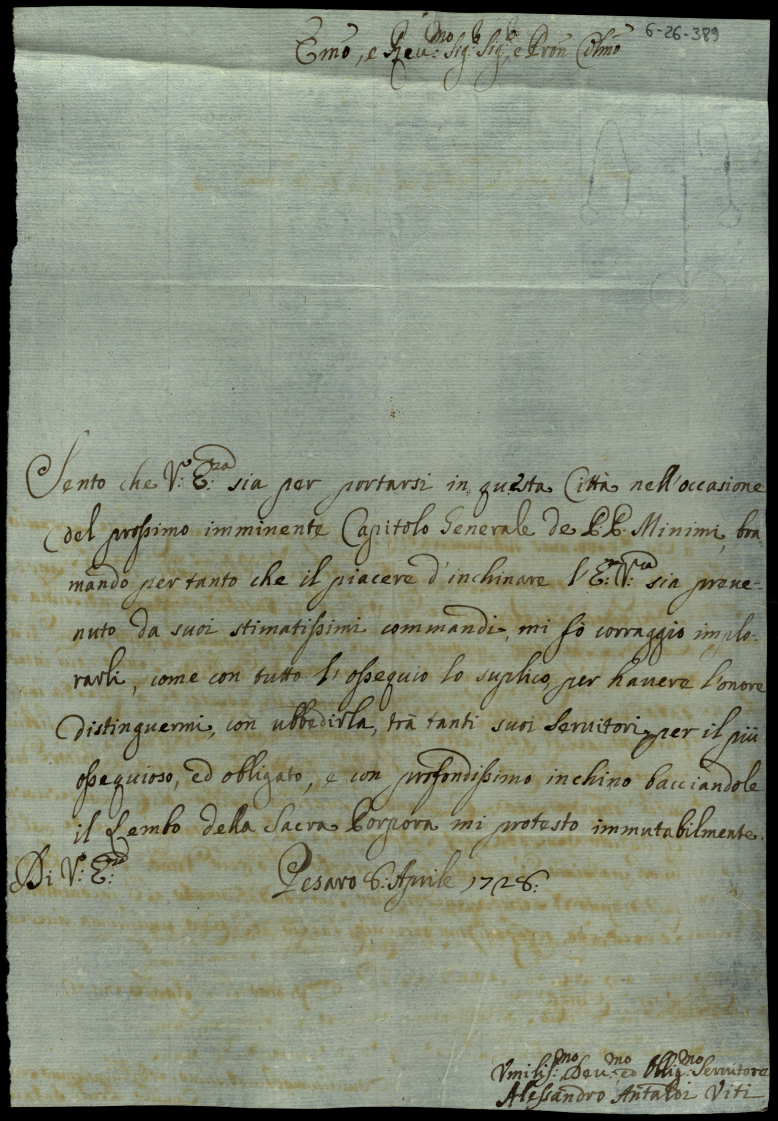 6-26-389
Emo, e Reu:mo Sig:r Sig:r, e Pron Colmo
Sento che V:ra E:nza sia per portarsi in questa Città nell'occasione
del prossimo imminente Capitolo Generale de P.P. Minimi, bra-
mando per tanto che il piacere d'inchinare l'E:nza V:ra sia preue-
nuto da suoi stimatissimi commandi, mi fò corraggio implo-
rarli, come con tutto l'ossequio lo suplico, per hauere l'onore
distinguermi, con ubbedirla, trà tanti suoi Seruitori, per il più
ossequioso, ed obligato, e con profondissimo inchino bacciandole
il Lembo della Sacra Porpora mi protesto immutabilmente.
Di V:ra E:nza Pesaro 6: Aprile 1728:
Vmiliss:mo Deu:mo ed Oblig:mo Seruitore
Alessandro Antaldi Viti